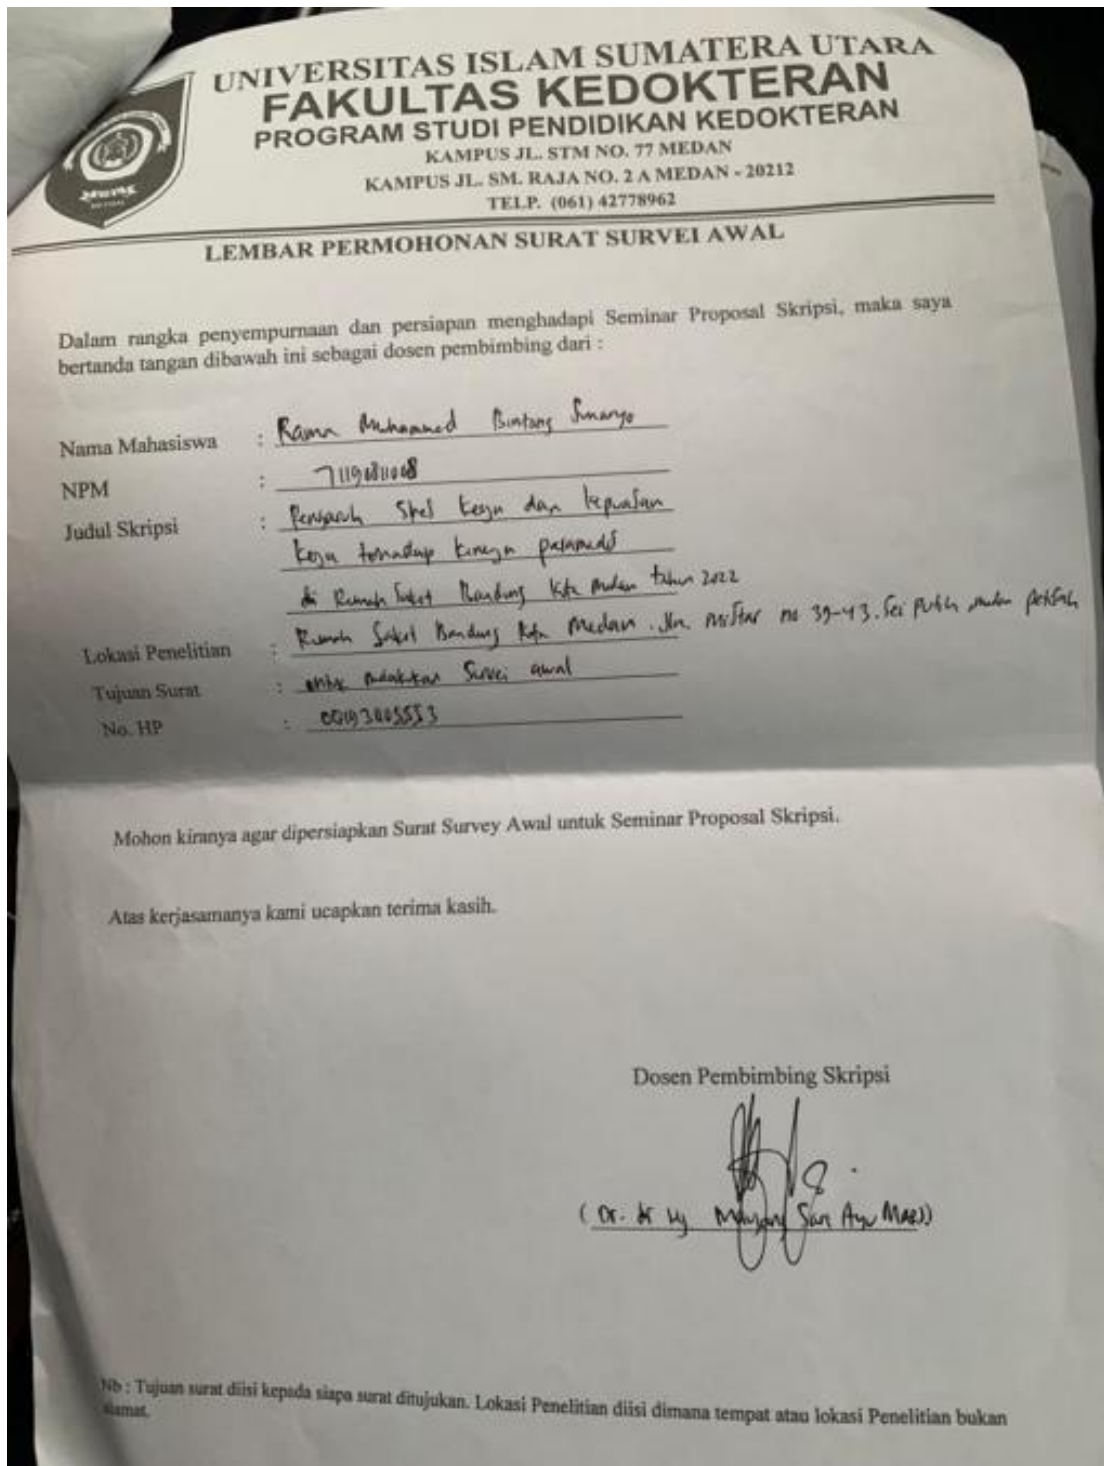 UNIVERSITAS ISLAM SUMATERA UTARA
FAKULTAS KEDOKTERAN
PROGRAM STUDI PENDIDIKAN KEDOKTERAN
KAMPUS JL. STM NO. 77 MEDAN
KAMPUS JL. SM. RAJA NO. 2 A MEDAN - 20212
TELP. (061) 42778962
LEMBAR PERMOHONAN SURAT SURVEI AWAL
Dalam rangka penyempurnaan dan persiapan menghadapi Seminar Proposal Skripsi, maka saya
bertanda tangan dibawah ini sebagai dosen pembimbing dari :
Nama Mahasiswa : Rama Muhammad Bintang
NPM :
Judul Skripsi : Pengaruh kerja dan kepuasan
kerja terhadap kinerja paramedis
di Rumah Sakit Bandung Kota Medan tahun 2022
Lokasi Penelitian : Rumah Sakit Bandung Kota Medan. Jln. Mistar no 39-43. Sei putih
Tujuan Surat : survei awal
No. HP :
Mohon kiranya agar dipersiapkan Surat Survey Awal untuk Seminar Proposal Skripsi.
Atas kerjasamanya kami ucapkan terima kasih.
Dosen Pembimbing Skripsi
(Dr. dr Hj Sari Ayu
Nb : Tujuan surat diisi kepada siapa surat ditujukan. Lokasi Penelitian diisi dimana tempat atau lokasi Penelitian bukan
alamat.